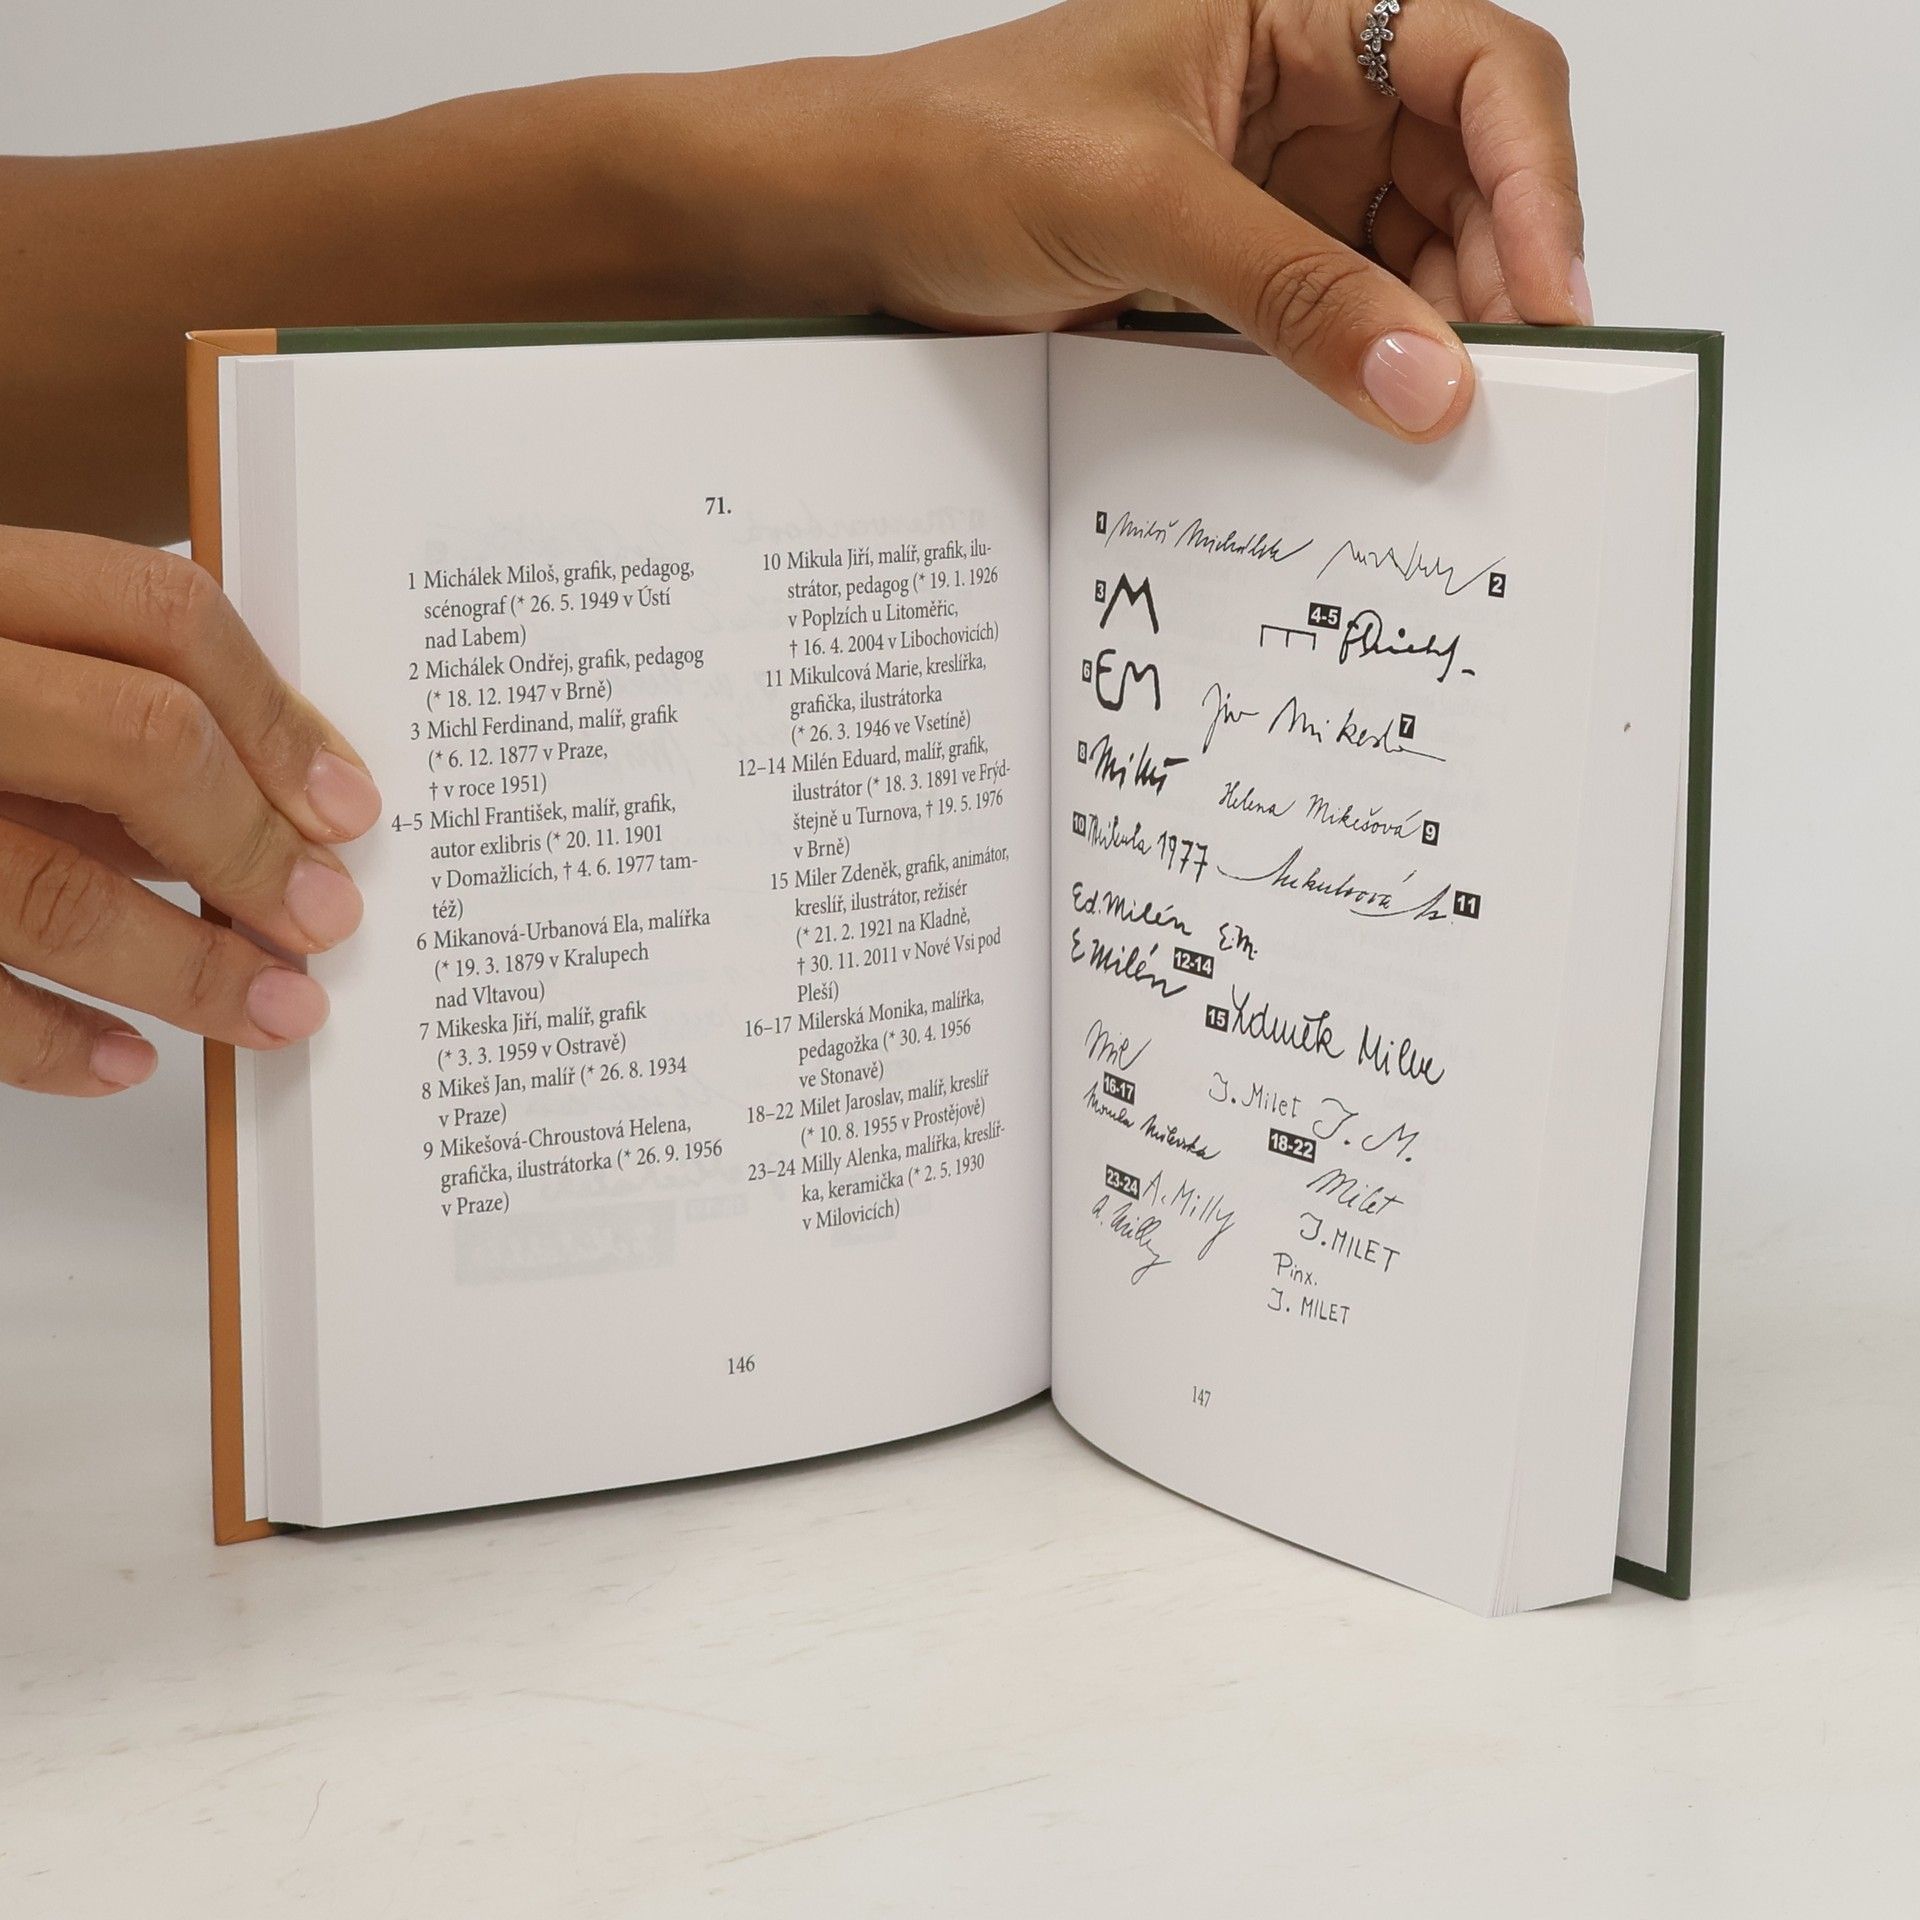 71.
1 Michálek Miloš, grafik, pedagog,
scénograf (* 26. 5. 1949 v Ústí
nad Labem)
2 Michálek Ondřej, grafik, pedagog
(* 18. 12. 1947 v Brně)
3 Michl Ferdinand, malíř, grafik
(* 6. 12. 1877 v Praze,
† v roce 1951)
4–5 Michl František, malíř, grafik,
autor exlibris (* 20. 11. 1901
v Domažlicích, † 4. 6. 1977 tam-
též)
6 Mikanová-Urbanová Ela, malířka
(* 19. 3. 1879 v Kralupech
nad Vltavou)
7 Mikeska Jiří, malíř, grafik
(* 3. 3. 1959 v Ostravě)
8 Mikeš Jan, malíř (* 26. 8. 1934
v Praze)
9 Mikešová-Chroustová Helena,
grafička, ilustrátorka (* 26. 9. 1956
v Praze)
10 Mikula Jiří, malíř, grafik, ilu-
strátor, pedagog (* 19. 1. 1926
v Poplzích u Litoměřic,
† 16. 4. 2004 v Libochovicích)
11 Mikulcová Marie, kreslířka,
grafička, ilustrátorka
(* 26. 3. 1946 ve Vsetíně)
12–14 Milén Eduard, malíř, grafik,
ilustrátor (* 18. 3. 1891 ve Frýd-
štejně u Turnova, † 19. 5. 1976
v Brně)
15 Miler Zdeněk, grafik, animátor,
kreslíř, ilustrátor, režisér
(* 21. 2. 1921 na Kladně,
† 30. 11. 2011 v Nové Vsi pod
Pleší)
16–17 Milerská Monika, malířka,
pedagožka (* 30. 4. 1956
ve Stonavě)
18–22 Milet Jaroslav, malíř, kreslíř
(* 10. 8. 1955 v Prostějově)
23–24 Milly Alenka, malířka, kreslíř-
ka, keramička (* 2. 5. 1930
v Milovicích)
146
1 Miloš Michálek
2
3 M
4-5
6 EM
7 Jiří Mikeska
8 Mikeš
Helena Mikešová 9
10 Mikula 1977
Mikulcová 11
Ed. Milén E.M.
E Milén 12-14
15 Zdeněk Miler
Mil
16-17
Monika Milerska
J. Milet J. M.
18-22
Milet
23-24 A. Milly
A. Milly
J. MILET
Pinx.
J. MILET
147